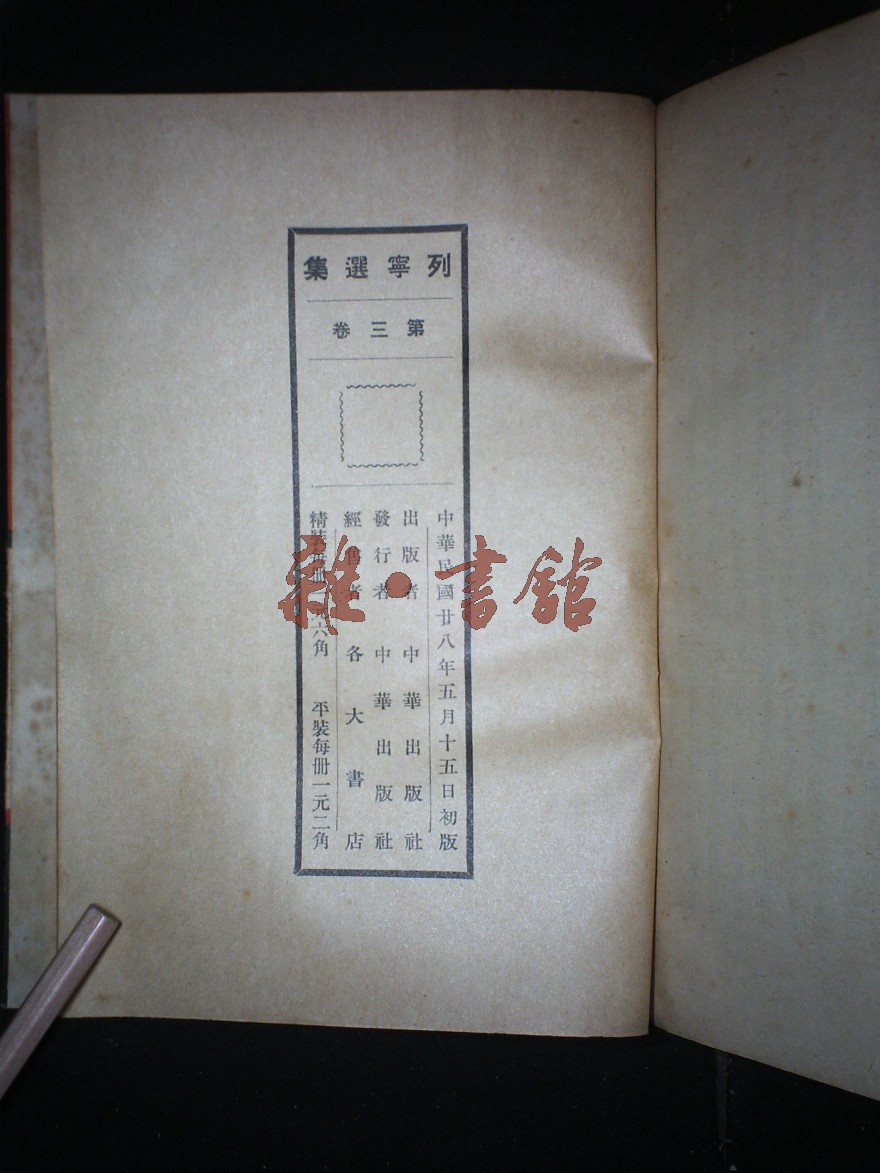 列寧選集
第三卷
中華民國廿八年五月十五日初版
出版者 中華出版社
發行者 中華出版社
經售者 各大書店
精裝每冊 六角 平裝每冊一元二角
雜·書館